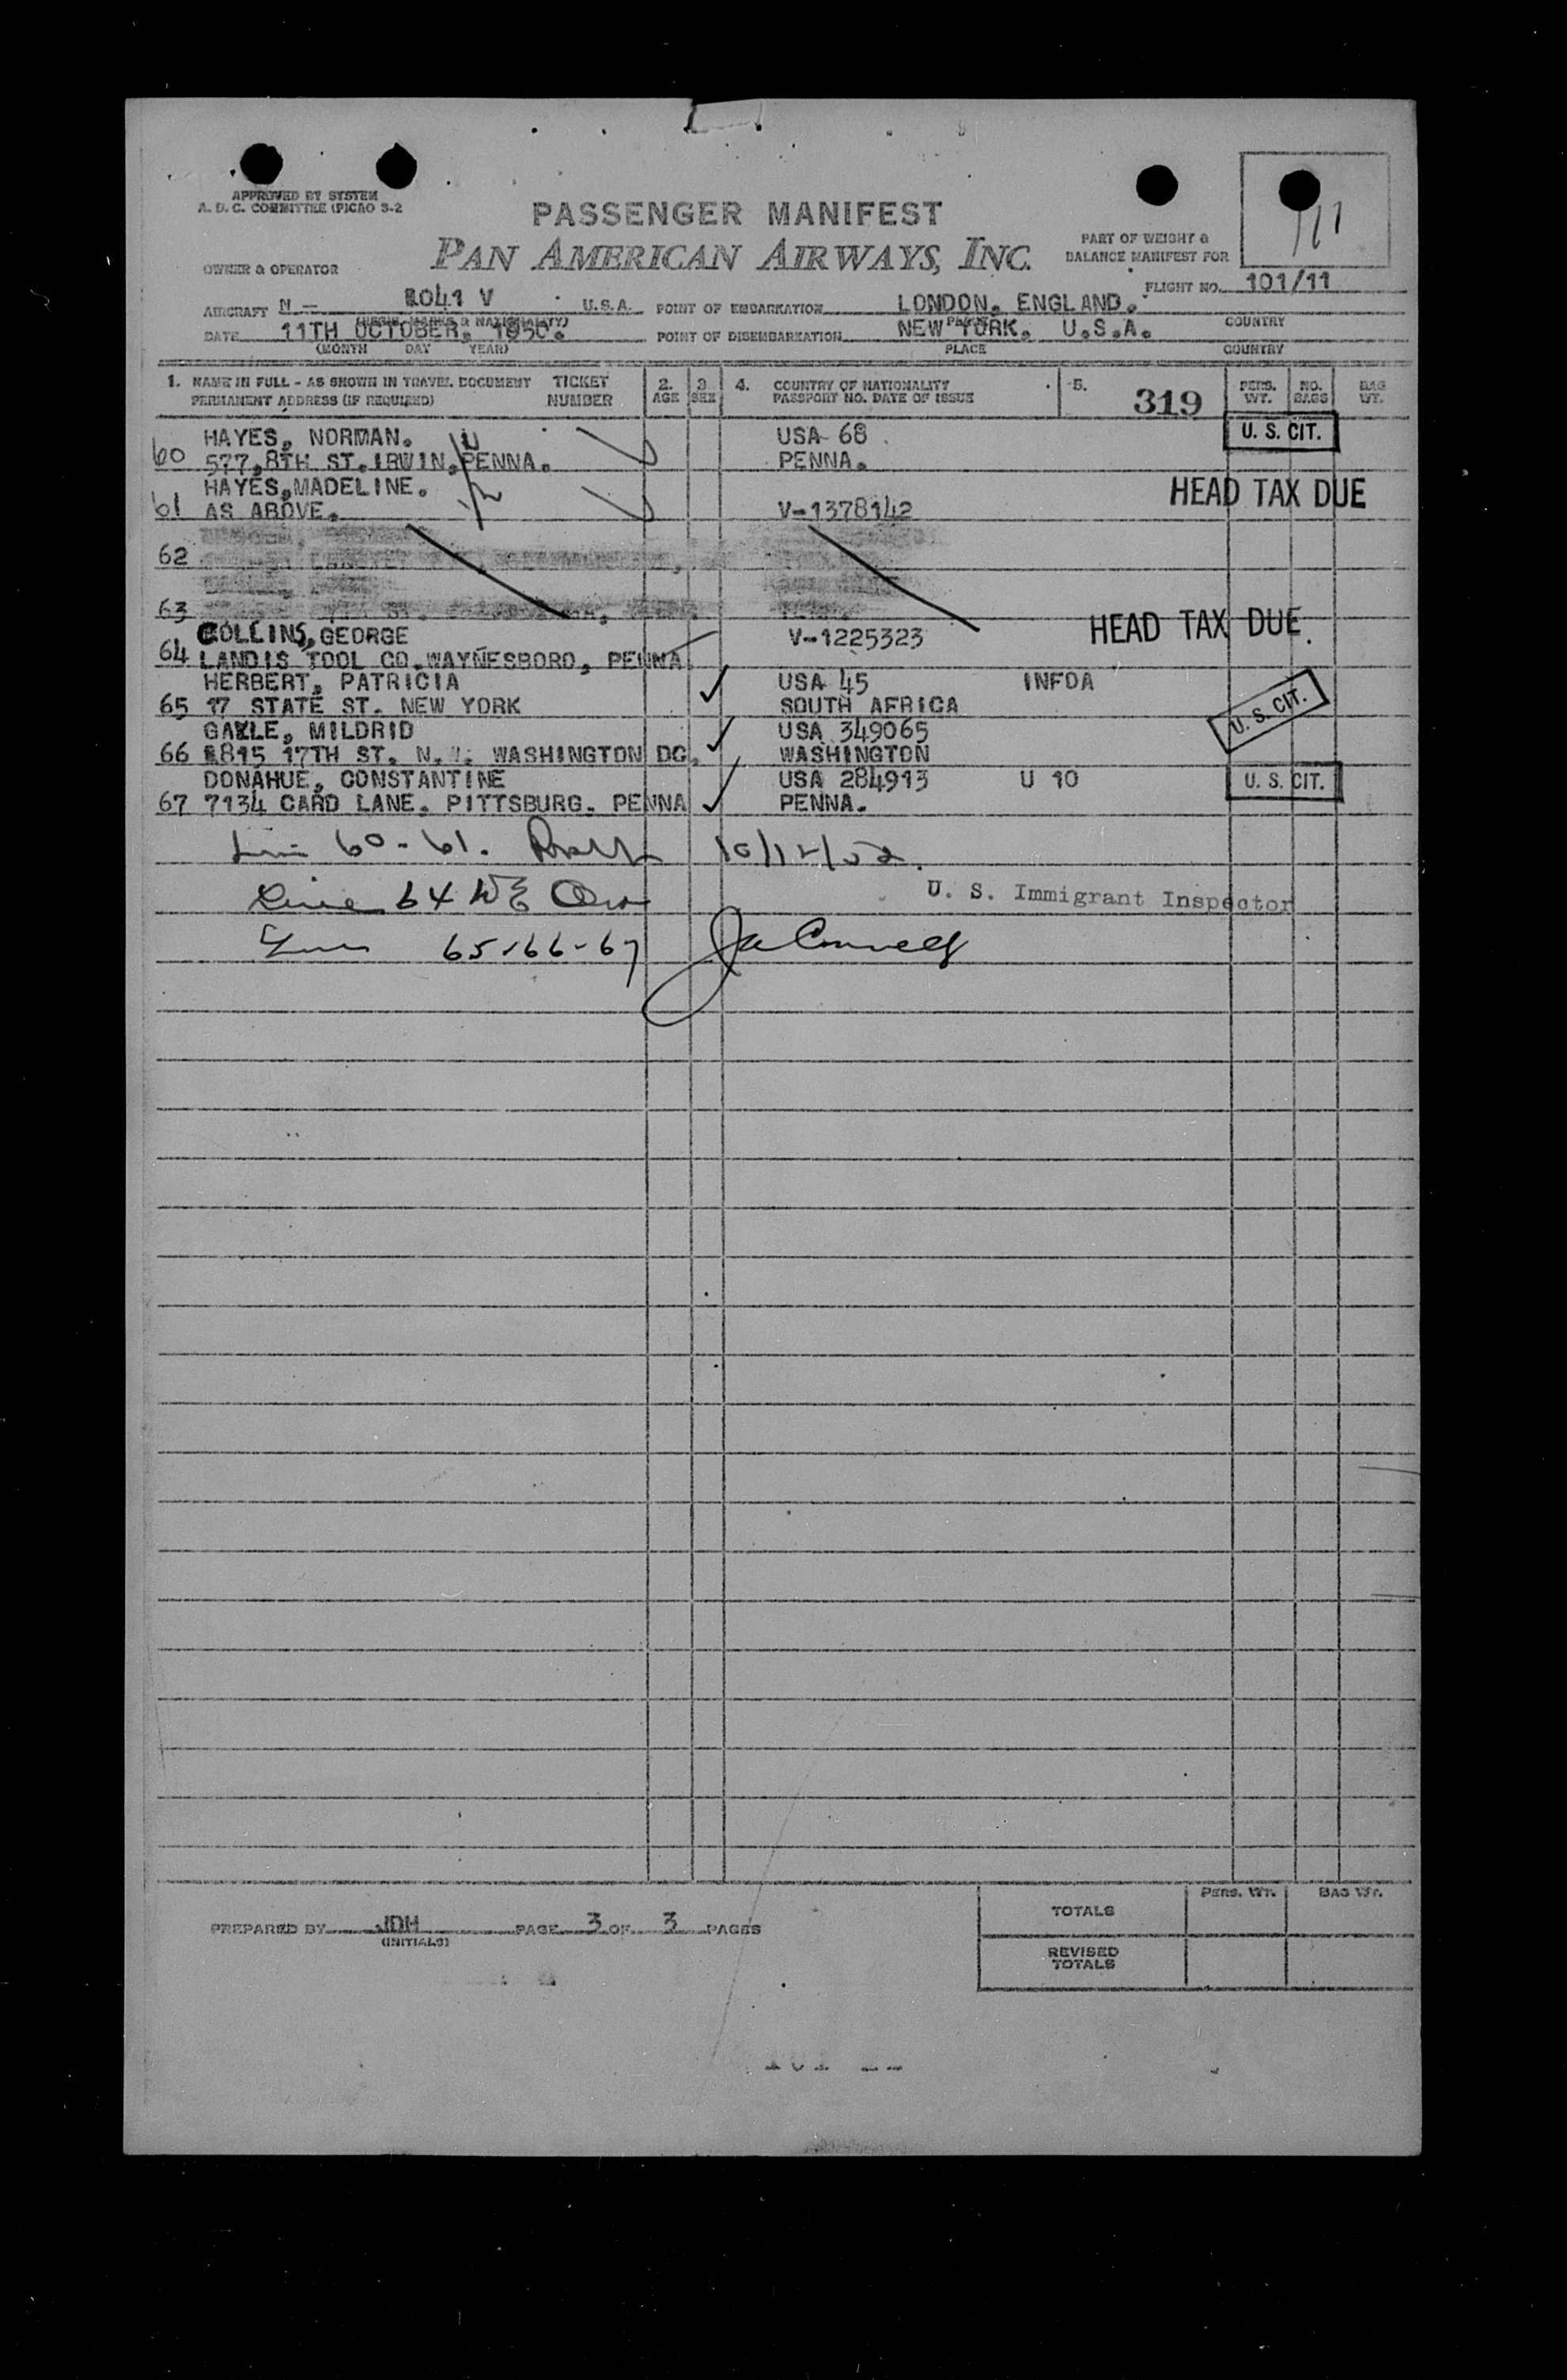 APPROVED BY SYSTEM
A. D. C. COMMITTEE (PICAO 3-2
PASSENGER MANIFEST
PAN AMERICAN AIRWAYS, INC.
PART OF WEIGHT &
BALANCE MANIFEST FOR
OWNER & OPERATOR
FLIGHT NO. 101/11
AIRCRAFT N - 1041 V U.S.A. POINT OF EMBARKATION LONDON, ENGLAND.
PLACE COUNTRY
DATE 11TH OCTOBER, 1950. POINT OF DISEMBARKATION NEW YORK. U.S.A.
(MONTH DAY YEAR) PLACE COUNTRY
1. NAME IN FULL - AS SHOWN IN TRAVEL DOCUMENT TICKET 2. 3. 4. COUNTRY OF NATIONALITY 5. 319 PERS. NO. BAG
PERMANENT ADDRESS (IF REQUIRED) NUMBER AGE SEX PASSPORT NO. DATE OF ISSUE WT. BAGS WT.
HAYES, NORMAN. USA 68 U. S. CIT.
60 577,8TH ST.IRWIN,PENNA. PENNA.
HAYES,MADELINE. HEAD TAX DUE
61 AS ABOVE. V-1378142
62
63
COLLINS,GEORGE V-1225323 HEAD TAX DUE.
64 LANDIS TOOL CO.WAYNESBORO, PENNA
HERBERT, PATRICIA USA 45 INFOA
65 17 STATE ST. NEW YORK SOUTH AFRICA U. S. CIT.
GAYLE, MILDRID USA 349065
66 1815 17TH ST. N.W. WASHINGTON DC. WASHINGTON
DONAHUE, CONSTANTINE USA 284913 U 10 U. S. CIT.
67 7134 CARD LANE. PITTSBURG. PENNA PENNA.
60-61.
Line 64
U. S. Immigrant Inspector
65-66-67
PREPARED BY JDH PAGE 3 OF 3 PAGES
(INITIALS)
PERS. WT. BAG WT.
TOTALS
REVISED
TOTALS